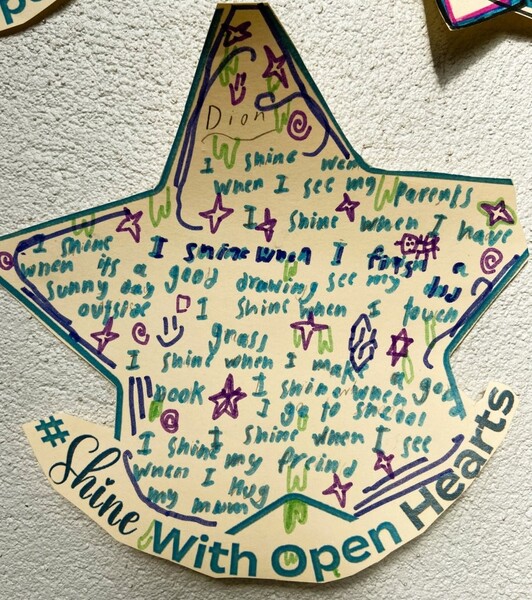 Dion
I shine wen
when I see my parents
I shine when I have
I shine when I finsh a
I shine
when its a good drawing see my dad
sunny day
outside I shine when I touch
grass
I shine when I make a god
book I shine when
I go to shcool
I shine when I see
I shine my freind
when I Hug
my mum
#Shine With Open Hearts